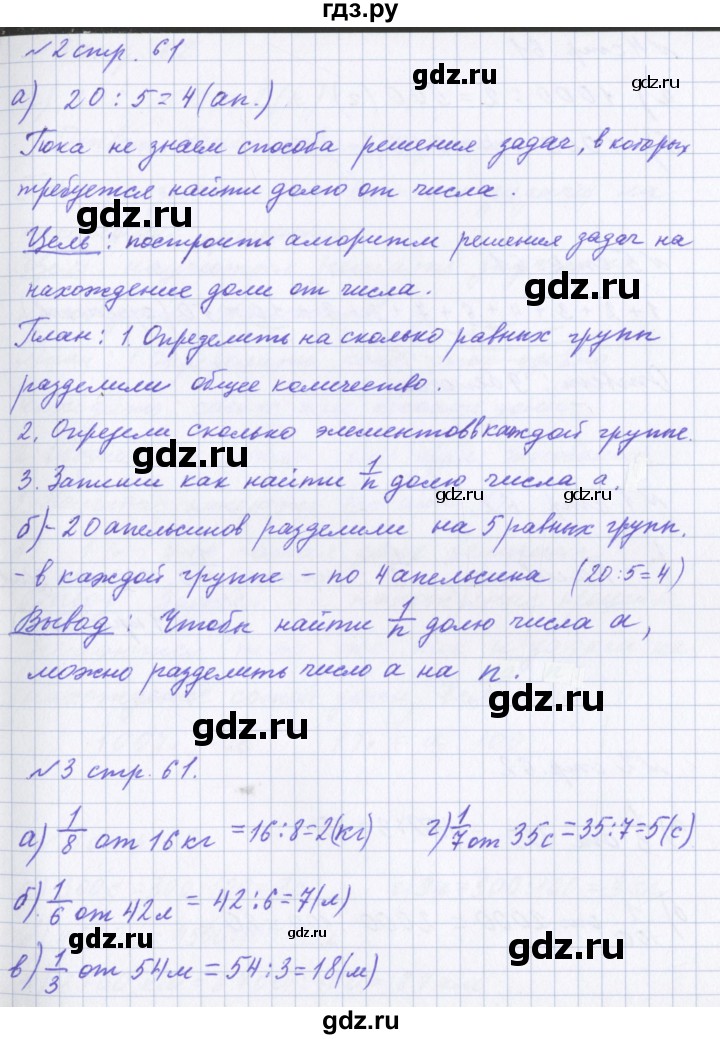 гдз.ру
№2 стр. 61
а) 20 : 5 = 4 (ап.)
Пока не знаем способа решения задач, в которых
требуется найти долю от числа.
gdz.ru
gdz.ru
Цель: построить алгоритм решения задач на
нахождение доли от числа.
gdz.ru
План: 1. Определить на сколько равных групп
разделили общее количество.
2. Определи сколько элементов в каждой группе.
gdz.ru
3. Запиши как найти 1/n долю числа a.
gdz.ru
gdz.ru
б) - 20 апельсинов разделили на 5 равных групп.
- в каждой группе - по 4 апельсина (20:5=4)
Вывод: Чтобы найти 1/n долю числа a,
можно разделить число a на n.
gdz.ru
gdz.ru
№3 стр. 61.
а) 1/8 от 16 кг = 16:8=2(кг) г) 1/7 от 35с = 35:7=5(с)
б) 1/6 от 42л = 42:6=7(л)
gdz.ru
gdz.ru
в) 1/3 от 54м = 54:3=18(м)
gdz.ru